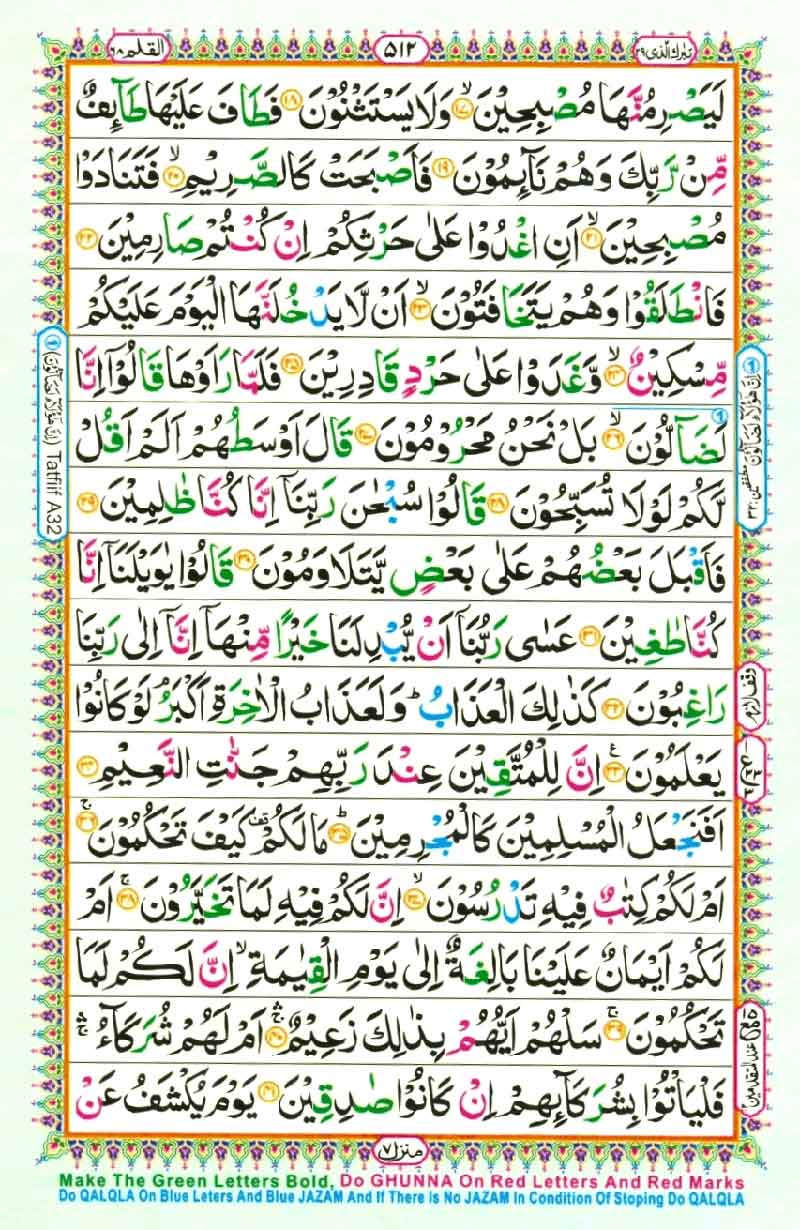 القلم ٦٨
٥١٢
تبٰرك الذی ٢٩
لَيَصْرِمُنَّهَا مُصْبِحِيْنَ ۙ‏ ۱۷ وَلَا يَسْتَثْنُوْنَ ۱۸ فَطَافَ عَلَيْهَا طَآئِفٌ
مِّنْ رَّبِّكَ وَهُمْ نَآئِمُوْنَ ۱۹ فَاَصْبَحَتْ كَالصَّرِيْمِ ۙ ۲۰ فَتَنَادَوْا
مُصْبِحِيْنَ ۙ ۲۱ اَنِ اغْدُوْا عَلٰى حَرْثِكُمْ اِنْ كُنْتُمْ صَارِمِيْنَ ۲۲
فَانْطَلَقُوْا وَهُمْ يَتَخَافَتُوْنَ ۙ ۲۳ اَنْ لَّا يَدْخُلَنَّهَا الْيَوْمَ عَلَيْكُمْ
مِّسْكِيْنٌ ۙ ۲۴ وَّغَدَوْا عَلٰى حَرْدٍ قَادِرِيْنَ ۲۵ فَلَمَّا رَاَوْهَا قَالُوْٓا اِنَّا
لَضَآلُّوْنَ ۙ ۲۶ بَلْ نَحْنُ مَحْرُوْمُوْنَ ۲۷ قَالَ اَوْسَطُهُمْ اَلَمْ اَقُلْ
لَّكُمْ لَوْلَا تُسَبِّحُوْنَ ۲۸ قَالُوْا سُبْحٰنَ رَبِّنَآ اِنَّا كُنَّا ظٰلِمِيْنَ ۲۹
فَاَقْبَلَ بَعْضُهُمْ عَلٰى بَعْضٍ يَّتَلَاوَمُوْنَ ۳۰ قَالُوْا يٰوَيْلَنَآ اِنَّا
كُنَّا طٰغِيْنَ ۳۱ عَسٰى رَبُّنَآ اَنْ يُّبْدِلَنَا خَيْرًا مِّنْهَآ اِنَّآ اِلٰى رَبِّنَا
رَاغِبُوْنَ ۳۲ كَذٰلِكَ الْعَذَابُ ؕ وَلَعَذَابُ الْاٰخِرَةِ اَكْبَرُ ۘ لَوْ كَانُوْا
يَعْلَمُوْنَ ۳۳ اِنَّ لِلْمُتَّقِيْنَ عِنْدَ رَبِّهِمْ جَنّٰتِ النَّعِيْمِ ۳۴
اَفَنَجْعَلُ الْمُسْلِمِيْنَ كَالْمُجْرِمِيْنَ ؕ ۳۵ مَا لَكُمْ كَيْفَ تَحْكُمُوْنَ ۚ ۳۶
اَمْ لَكُمْ كِتٰبٌ فِيْهِ تَدْرُسُوْنَ ۙ ۳۷ اِنَّ لَكُمْ فِيْهِ لَمَا تَخَيَّرُوْنَ ۚ ۳۸ اَمْ
لَكُمْ اَيْمَانٌ عَلَيْنَا بَالِغَةٌ اِلٰى يَوْمِ الْقِيٰمَةِ ۙ اِنَّ لَكُمْ لَمَا
تَحْكُمُوْنَ ۚ ۳۹ سَلْهُمْ اَيُّهُمْ بِذٰلِكَ زَعِيْمٌ ۛۚ ۴۰ اَمْ لَهُمْ شُرَكَآءُ ۛۚ
فَلْيَاْتُوْا بِشُرَكَآئِهِمْ اِنْ كَانُوْا صٰدِقِيْنَ ۴۱ يَوْمَ يُكْشَفُ عَنْ
① اِنَّ هٰٓؤُلَآءِ لَضَآلُّوْنَ مطففين ٣٢
① (اِنَّ هٰٓؤُلَآءِ لَضَآلُّوْنَ) Tatfiif A32
وقف لازم
ع
مع عند المتقدمين
منزل ٧
Make The Green Letters Bold, Do GHUNNA On Red Letters And Red Marks
Do QALQLA On Blue Leters And Blue JAZAM And If There is No JAZAM In Condition Of Stoping Do QALQLA